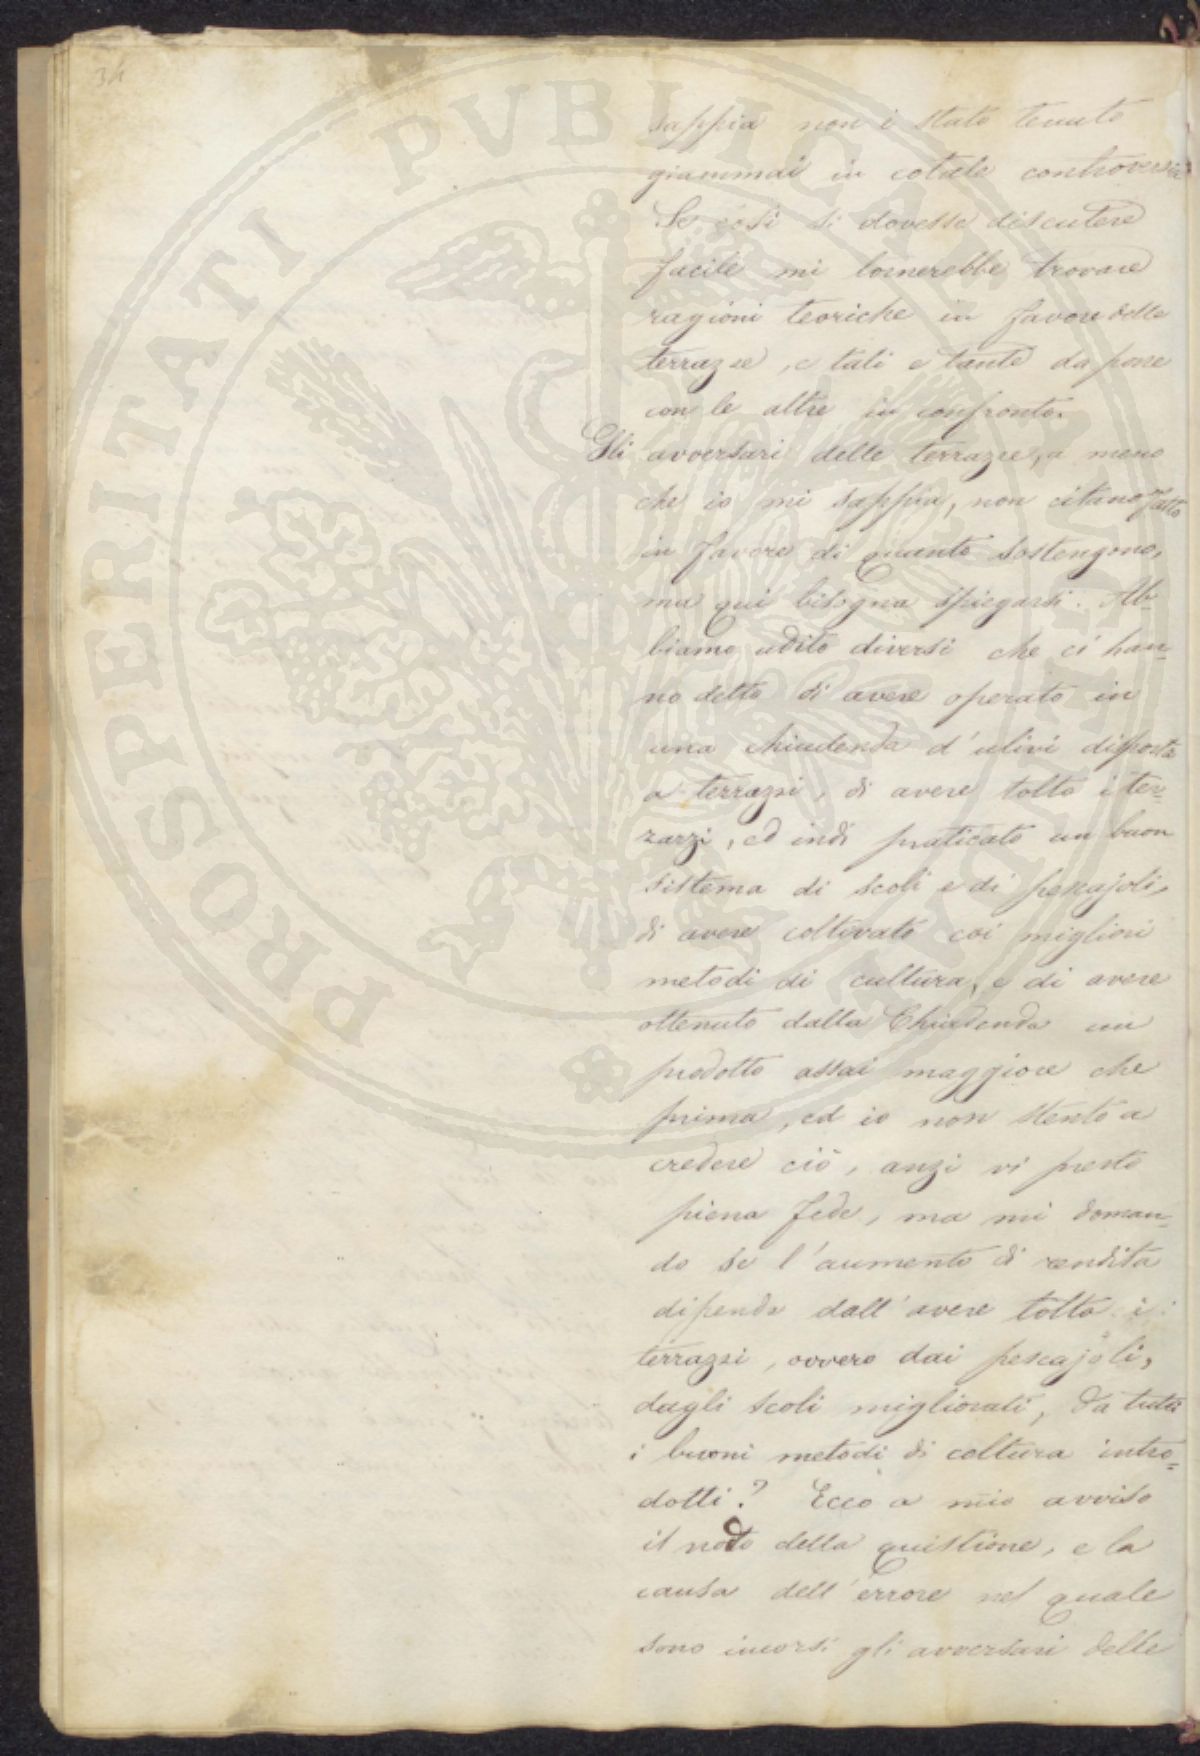 34
PROSPERITATI PVBLICAE AVGENDAE
sappia non è stato tenuto
giammai in cotale controversia
Se così si dovesse discutere
facile mi tornerebbe trovare
ragioni teoriche in favore delle
terrazze, e tali e tante da porre
con le altre in confronto.
Gli avversari delle terrazze, a meno
che io mi sappia, non citano fatto
in favore di quanto sostengono,
ma qui bisogna spiegarsi. Ab-
biamo udito diversi che ci han-
no detto di avere operato in
una chiudenda d'ulivi disposta
a terrazzi, di avere tolto i ter-
razzi, ed indi praticato un buon
sistema di scoli e di pescajoli,
di avere coltivato coi migliori
metodi di cultura, e di avere
ottenuto dalla Chiudenda un
prodotto assai maggiore che
prima, ed io non stento a
credere ciò, anzi vi presto
piena fede, ma mi doman-
do se l'aumento di rendita
dipenda dall'avere tolto i
terrazzi, ovvero dai pescajoli,
dagli scoli migliorati, da tutti
i buoni metodi di coltura intro=
dotti? Ecco a mio avviso
il nodo della quistione, e la
causa dell'errore nel quale
sono incorsi gli avversari delle